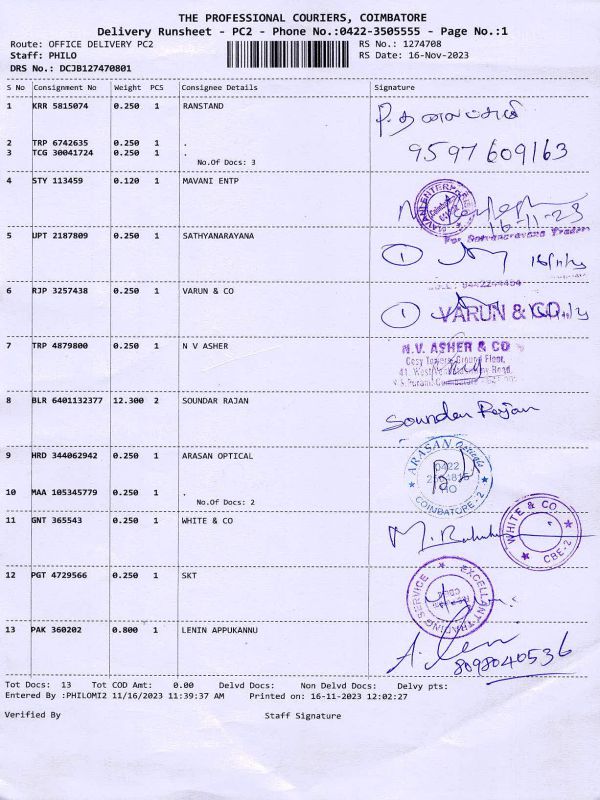 THE PROFESSIONAL COURIERS, COIMBATORE
Delivery Runsheet - PC2 - Phone No.:0422-3505555 - Page No.:1
Route: OFFICE DELIVERY PC2 RS No.: 1274708
Staff: PHILO RS Date: 16-Nov-2023
DRS No.: DCJB127470801
S No Consignment No Weight PCS Consignee Details Signature
1 KRR 5815074 0.250 1 RANSTAND
2 TRP 6742635 0.250 1 .
3 TCG 30041724 0.250 1 .
No.Of Docs: 3
9597609163
4 STY 113459 0.120 1 MAVANI ENTP
MAVANI ENTERPRISES
16-11-23
5 UPT 2187809 0.250 1 SATHYANARAYANA
For Sathyanarayana Traders
1 16/11/23
6 RJP 3257438 0.250 1 VARUN & CO
1 VARUN & CO.
7 TRP 4879800 0.250 1 N V ASHER
N.V. ASHER & CO
Cosy Towers, Ground Floor,
8 BLR 6401132377 12.300 2 SOUNDAR RAJAN
Soundar Rajan
9 HRD 344062942 0.250 1 ARASAN OPTICAL
ARASAN Opticals
0422
COIMBATORE - 2
10 MAA 105345779 0.250 1 .
No.Of Docs: 2
11 GNT 365543 0.250 1 WHITE & CO
WHITE & CO.
CBE-2
12 PGT 4729566 0.250 1 SKT
EXCELLENT TRADING SERVICE
13 PAK 360202 0.800 1 LENIN APPUKANNU
8098040536
Tot Docs: 13 Tot COD Amt: 0.00 Delvd Docs: Non Delvd Docs: Delvy pts:
Entered By :PHILOMI2 11/16/2023 11:39:37 AM Printed on: 16-11-2023 12:02:27
Verified By Staff Signature